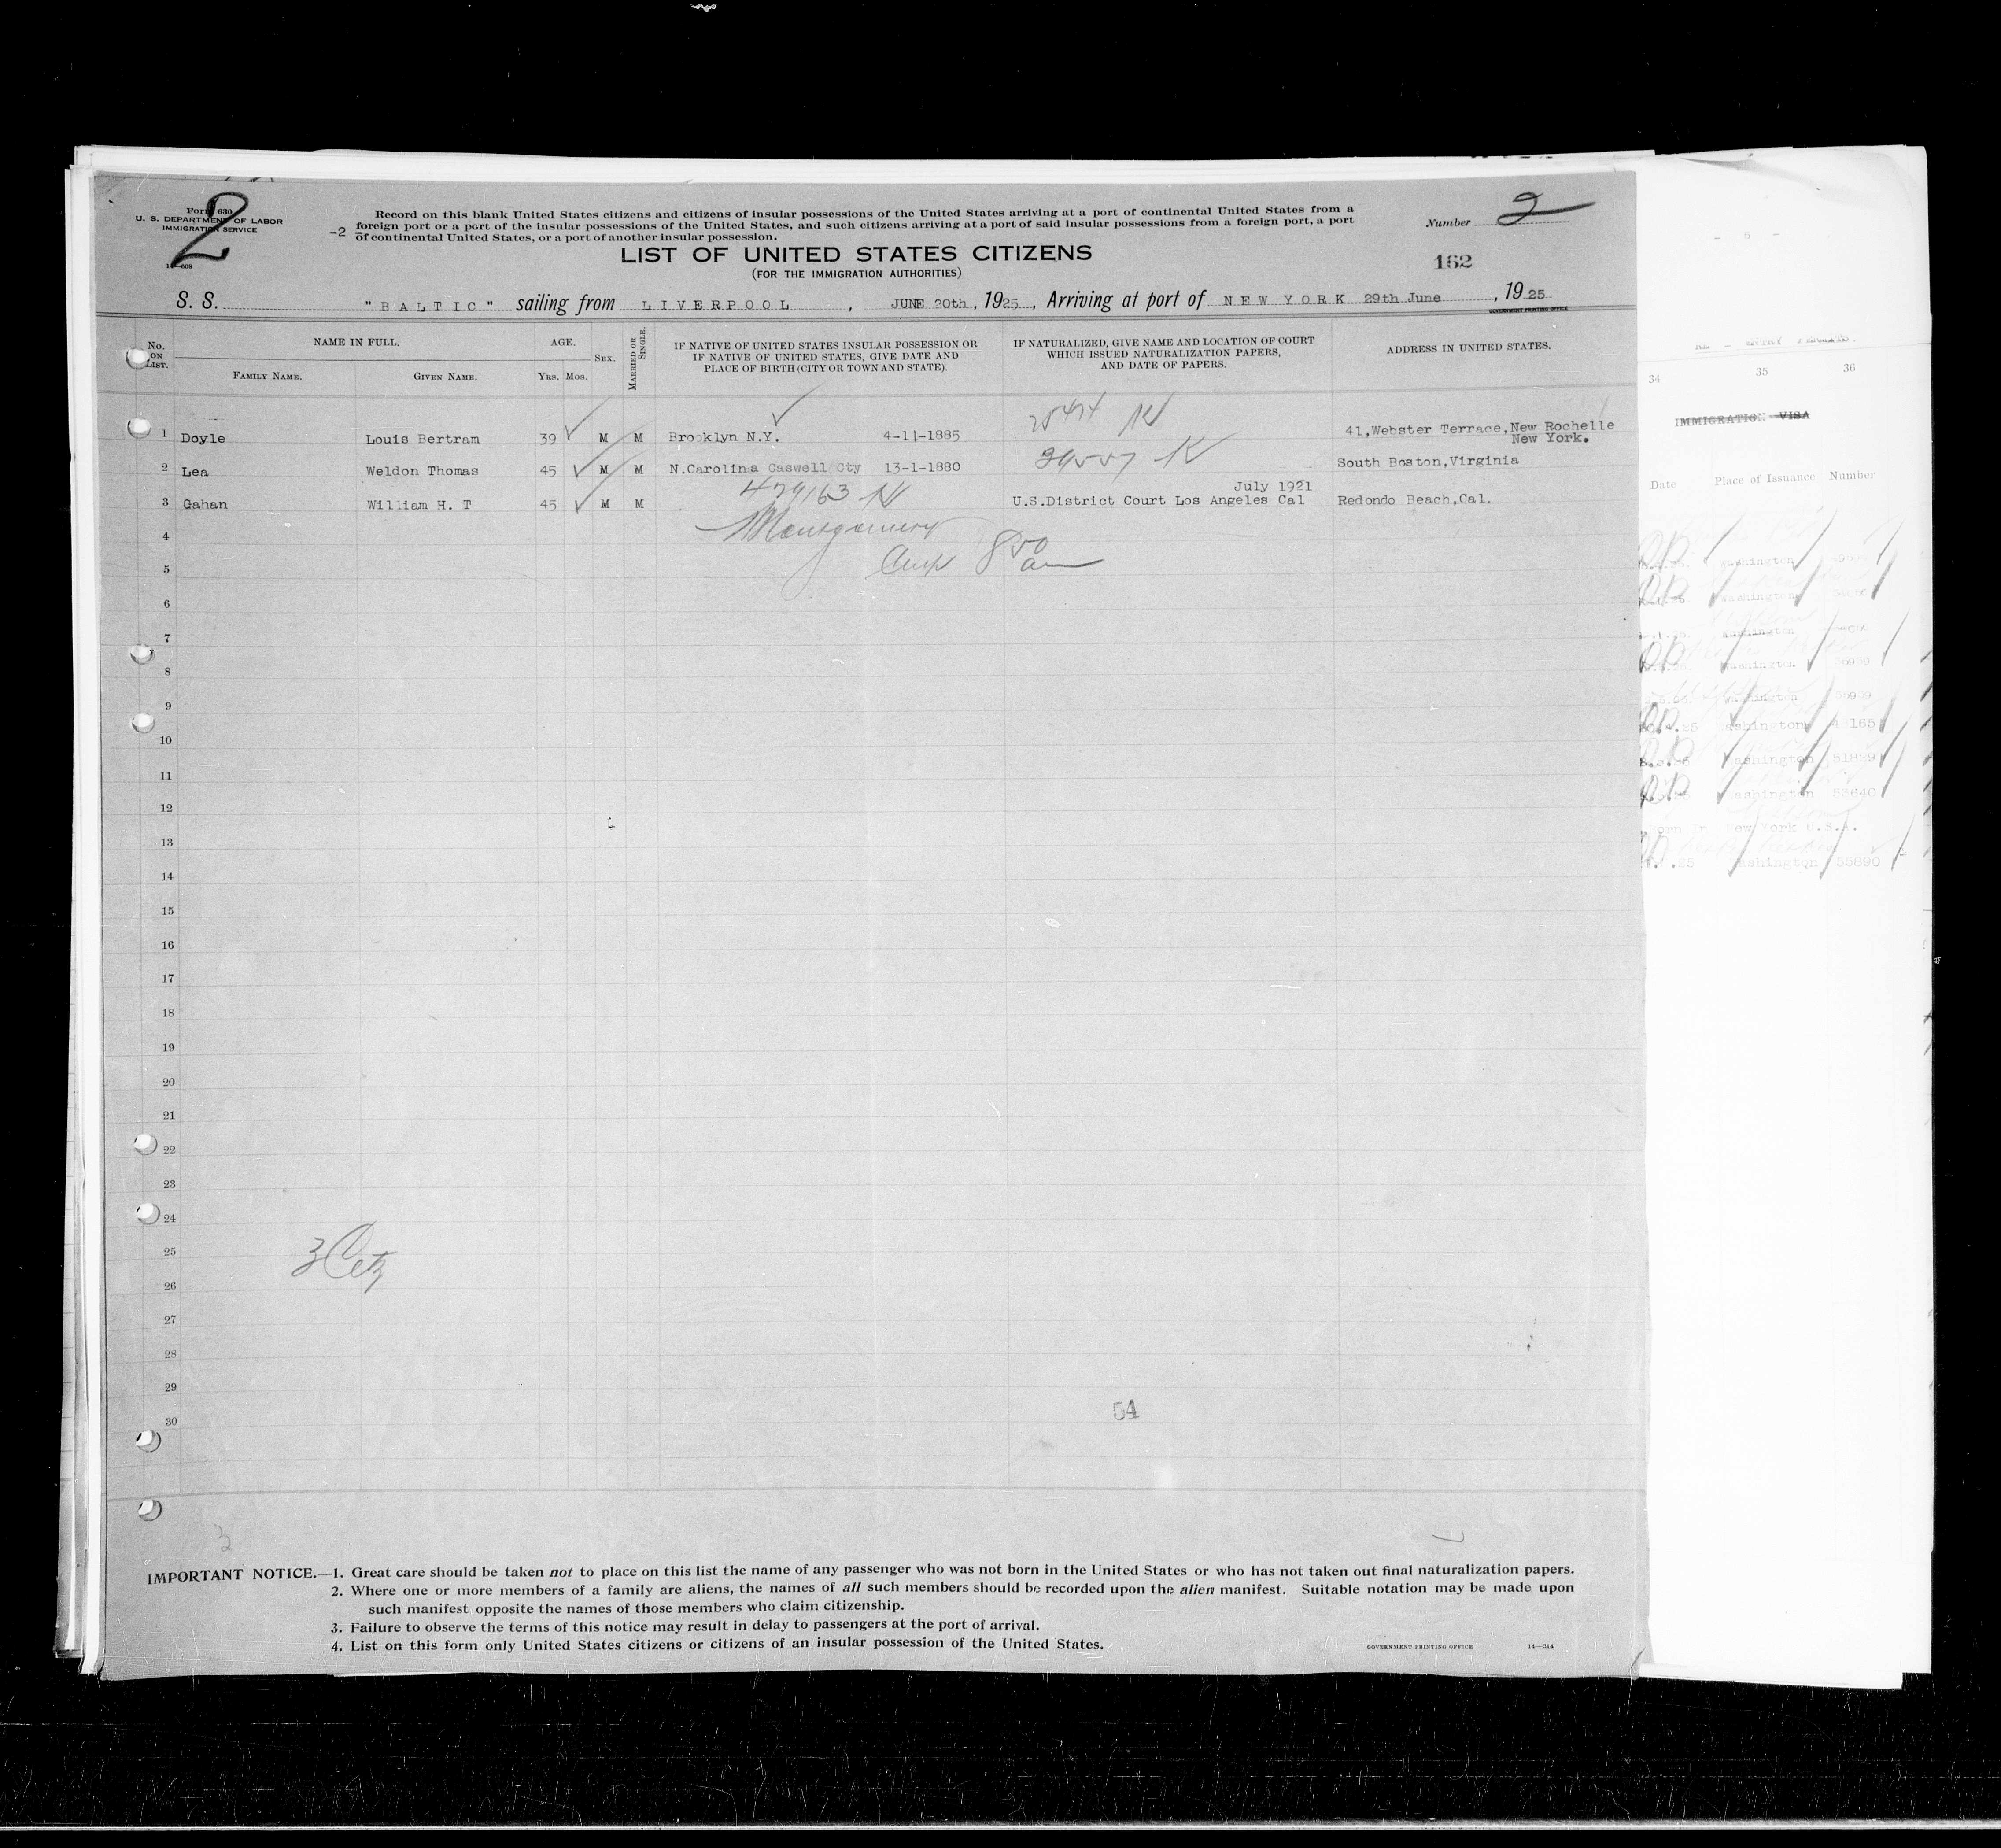 Form 630
U. S. DEPARTMENT OF LABOR
IMMIGRATION SERVICE
2
14—608
-2
Record on this blank United States citizens and citizens of insular possessions of the United States arriving at a port of continental United States from a
foreign port or a port of the insular possessions of the United States, and such citizens arriving at a port of said insular possessions from a foreign port, a port
of continental United States, or a port of another insular possession.
Number 2
LIST OF UNITED STATES CITIZENS
(FOR THE IMMIGRATION AUTHORITIES)
162
S. S. "BALTIC" sailing from LIVERPOOL, JUNE 20th, 1925, Arriving at port of NEW YORK 29th June, 1925
GOVERNMENT PRINTING OFFICE
No. ON LIST. NAME IN FULL. AGE. SEX. MARRIED OR SINGLE. IF NATIVE OF UNITED STATES INSULAR POSSESSION OR IF NATIVE OF UNITED STATES, GIVE DATE AND PLACE OF BIRTH (CITY OR TOWN AND STATE). IF NATURALIZED, GIVE NAME AND LOCATION OF COURT WHICH ISSUED NATURALIZATION PAPERS, AND DATE OF PAPERS. ADDRESS IN UNITED STATES.
FAMILY NAME. GIVEN NAME. YRS. MOS.
1 Doyle Louis Bertram 39 M M Brooklyn N.Y. 4-11-1885 41,Webster Terrace,New Rochelle
New York.
2 Lea Weldon Thomas 45 M M N.Carolina Caswell Cty 13-1-1880 South Boston,Virginia
479163
July 1921
3 Gahan William H. T 45 M M U.S.District Court Los Angeles Cal Redondo Beach,Cal.
Montgomery
4
5
6
7
8
9
10
11
12
13
14
15
16
17
18
19
20
21
22
23
24
25
26
27
28
29
30
54
3
IMPORTANT NOTICE.—1. Great care should be taken not to place on this list the name of any passenger who was not born in the United States or who has not taken out final naturalization papers.
2. Where one or more members of a family are aliens, the names of all such members should be recorded upon the alien manifest. Suitable notation may be made upon
such manifest opposite the names of those members who claim citizenship.
3. Failure to observe the terms of this notice may result in delay to passengers at the port of arrival.
4. List on this form only United States citizens or citizens of an insular possession of the United States.
GOVERNMENT PRINTING OFFICE 14—314
34 35 36
IMMIGRATION VISA
Date Place of Issuance Number
Washington
Washington
Washington
Washington
Washington
Washington 165
Washington 51829
Washington 53640
New York U.S.A.
Washington 55890